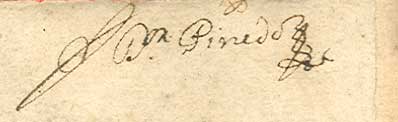 Dn Pinedo